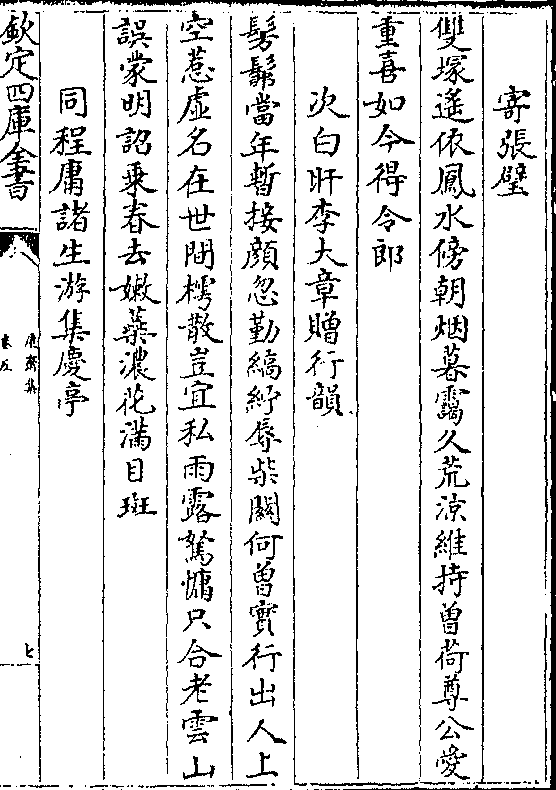 寄張璧
雙塚遙依鳳水傍朝烟暮靄久荒涼維持曽荷尊公愛
重喜如今得令郎
次白𣅿李大章贈行韻
髣髴當年暫接顔忽勤縞紵辱柴關何曽實行出人上
空惹虚名在世間樗散豈宜私雨露駑慵只合老雲山
誤蒙明詔乗春去嫩蘂濃花滿目斑
同程庸諸生游集慶亭
欽定四庫全書
卷五
七